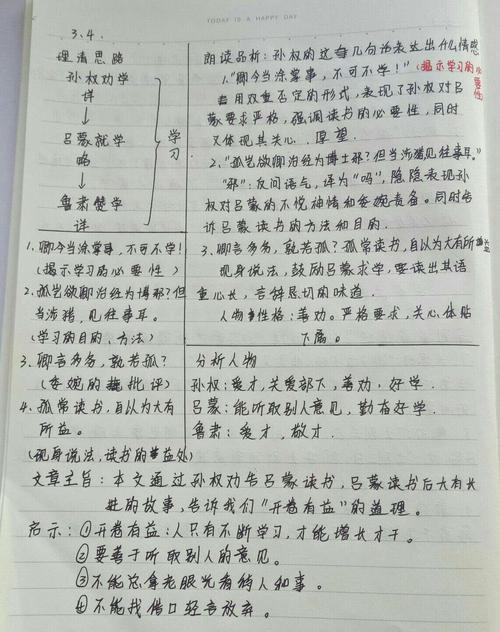 TODAY IS A HAPPY DAY
3.4.
理清思路
孙权劝学
详
↓
吕蒙就学
略
↓
鲁肃赞学
详
学习
朗读品析：孙权的这每几句话表达出什么情感
1."卿今当涂掌事，不可不学！"(揭示学习的必要性)
用双重否定的形式，表现了孙权对吕
蒙要求严格，强调读书的必要性，同时
又体现其关心、厚望.
2."孤岂欲卿治经为博士邪？但当涉猎见往事耳."
"邪"：反问语气，译为"吗"，隐隐表现孙
权对吕蒙的不悦神情和委婉责备。同时告
诉吕蒙读书的方法和目的.
1.卿今当涂掌事，不可不学！
(揭示学习的必要性)
2.孤岂欲卿治经为博邪？但
当涉猎，见往事耳。
(学习的目的、方法)
3、卿言多务，孰若孤？
(委婉的批评)
4、孤常读书，自以为大有
所益。
(现身说法，读书的益处)
3、卿言多务，孰若孤？孤常读书，自以为大有所益
现身说法，鼓励吕蒙求学，要读出其语
重心长，言辞恳切的味道.
人物性格：善劝。严格要求，关心体贴
下属。
分析人物
孙权：爱才，关爱部下，善劝，好学.
吕蒙：能听取别人意见，勤奋好学.
鲁肃：爱才，敬才.
文章主旨：本文通过孙权劝告吕蒙读书，吕蒙读书后大有长
进的故事，告诉我们"开卷有益"的道理。
启示：①开卷有益：人只有不断学习，才能增长才干。
②要善于听取别人的意见。
③不能总拿老眼光看待人和事。
④不能找借口轻言放弃。